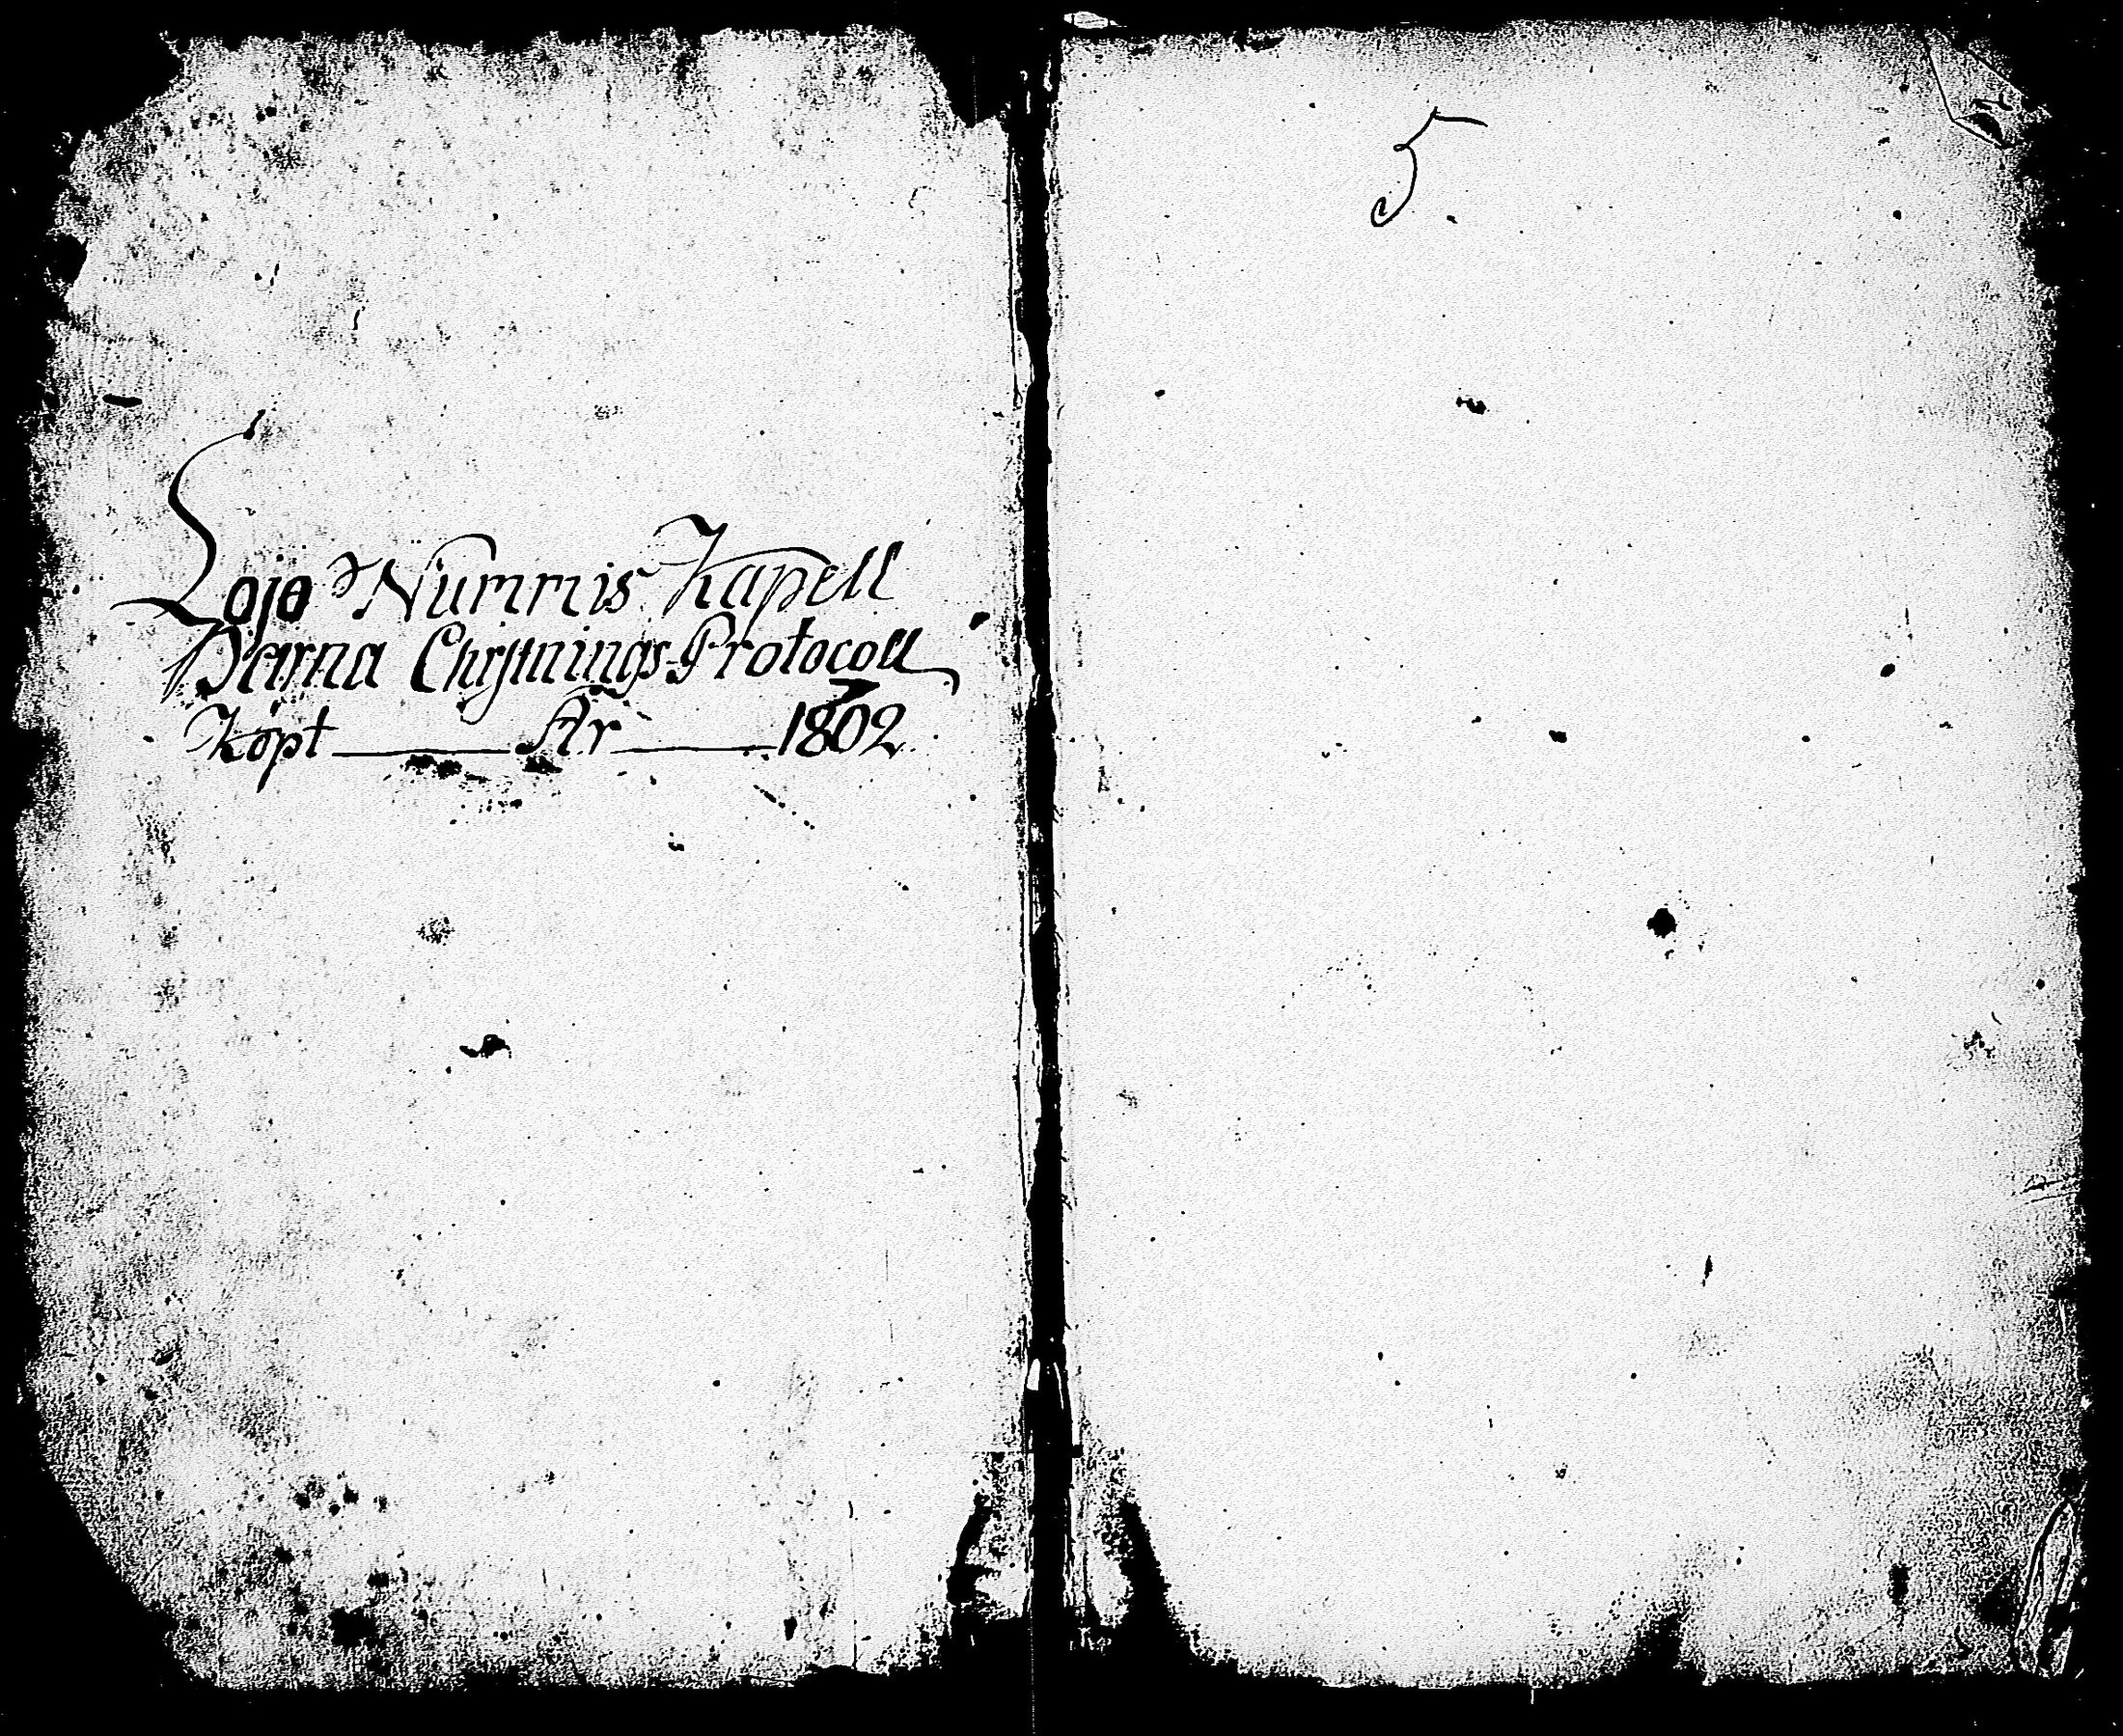 Lojo Nummis Kapell
Barna Christnings-Protocoll
Köpt År 1802
5